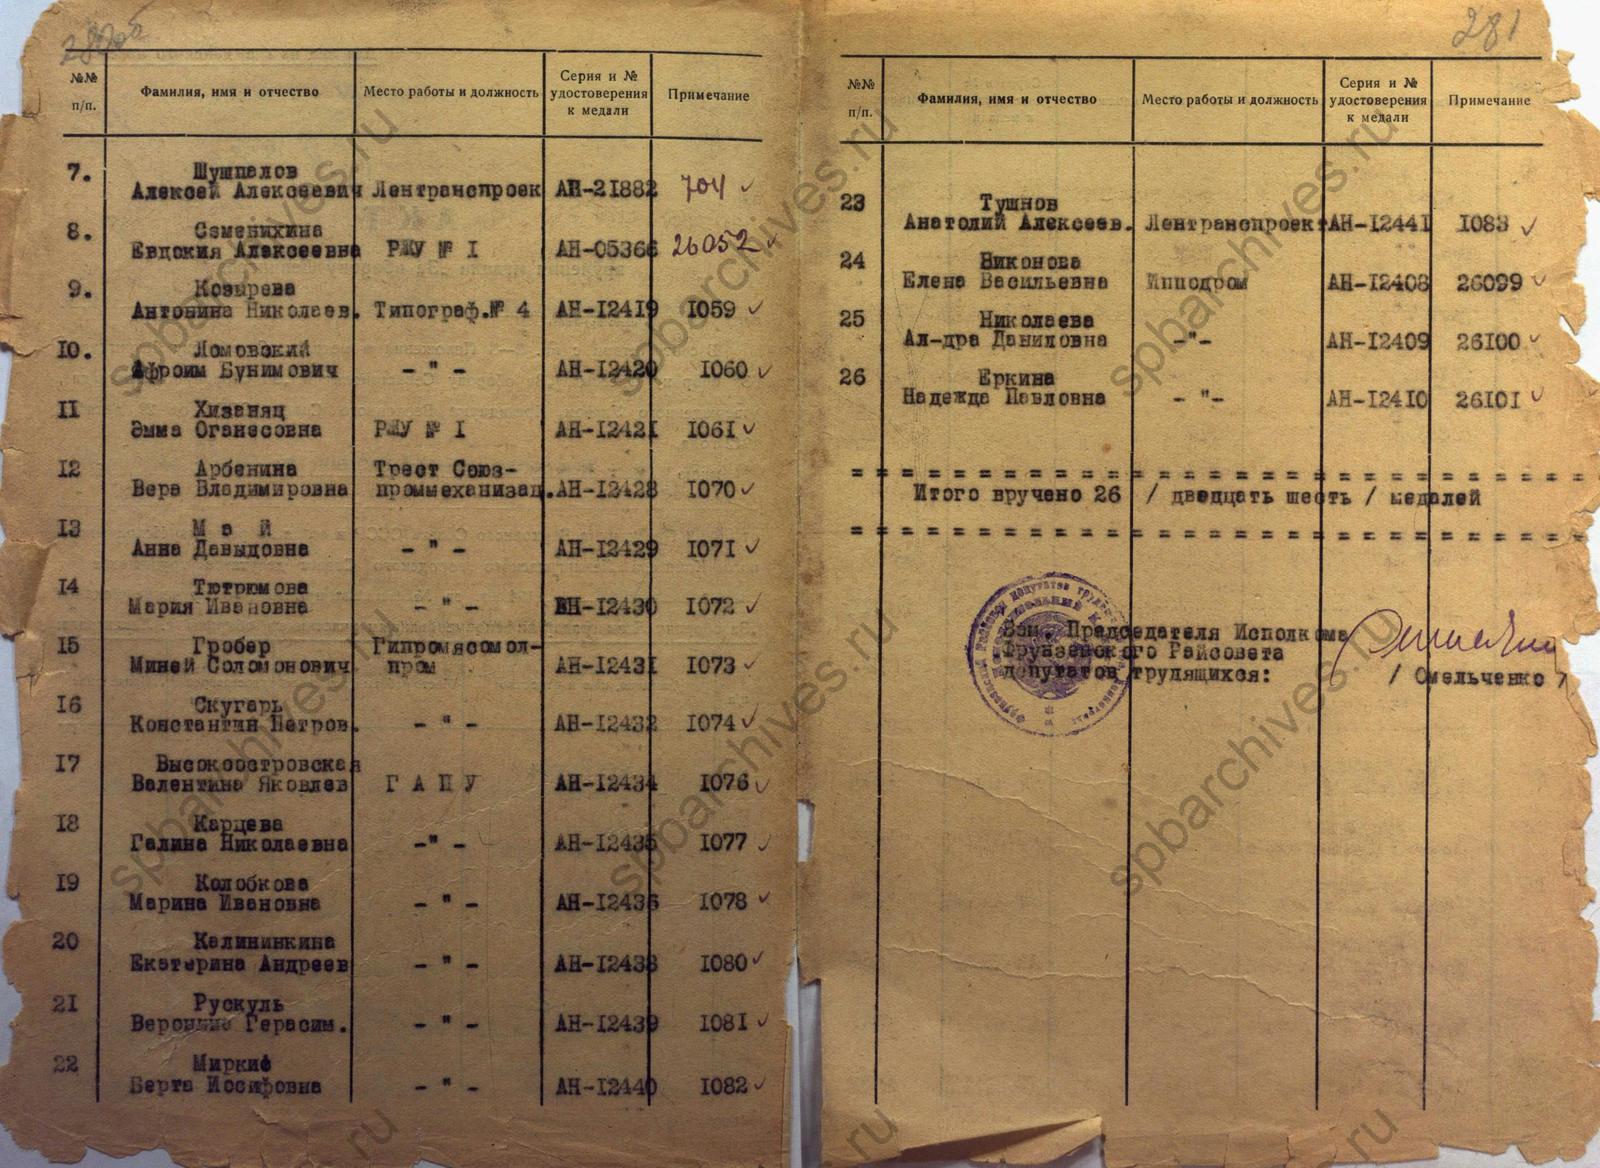 280об
№№ п/п.
Фамилия, имя и отчество
Место работы и должность
Серия и № удостоверения к медали
Примечание
7. Шушпалов
Алексей Алексеевич Лентранспроек АН-21882 704
8. Семенихина
Евдокия Алексеевна РЖУ № I АН-05366 26052
9. Козырева
Антонина Николаев. Типограф.№ 4 АН-I24I9 I059
I0. Ломовский
Эфроим Бунимович - " - АН-I2420 I060
II Хизаняц
Эмма Оганесовна РЖУ № I АН-I242I I06I
I2 Арбенина Трест Союз-
Вера Владимировна проммеханизац. АН-I2428 I070
I3 М а й
Анна Давыдовна - " - АН-I2429 I07I
I4 Тютрюмова
Мария Ивановна - " - АН-I2430 I072
I5 Гробер Гипромясомол-
Миней Соломонович пром АН-I243I I073
I6 Скугарь
Константин Петров. - " - АН-I2432 I074
I7 Высокоостровская
Валентина Яковлев Г А П У АН-I2434 I076
I8 Карцева
Галина Николаевна -" - АН-I2435 I077
I9 Колобкова
Марина Ивановна - " - АН-I2436 I078
20 Калининкина
Екатерина Андреев - " - АН-I2438 I080
2I Рускуль
Вероника Герасим. - " - АН-I2439 I08I
22 Миркис
Берта Иосифовна - " - АН-I2440 I082
281
№№ п/п.
Фамилия, имя и отчество
Место работы и должность
Серия и № удостоверения к медали
Примечание
23 Тушнов
Анатолий Алексеев. Лентранспроект АН-I244I I083
24 Никонова
Елена Васильевна Ипподром АН-I2408 26099
25 Николаева
Ал-дра Даниловна -"- АН-I2409 26I00
26 Еркина
Надежда Павловна - "- АН-I24I0 26I0I
Итого вручено 26 / двадцать шесть / медалей
Зам. Председателя Исполкома
Фрунзенского Райсовета
депутатов трудящихся: / Омельченко /
spbarchives.ru